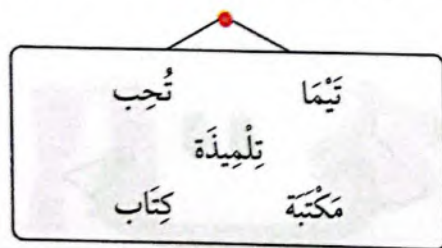 تَيْمَا تُحِب
تِلْمِيذَة
مَكْتَبَة كِتَاب